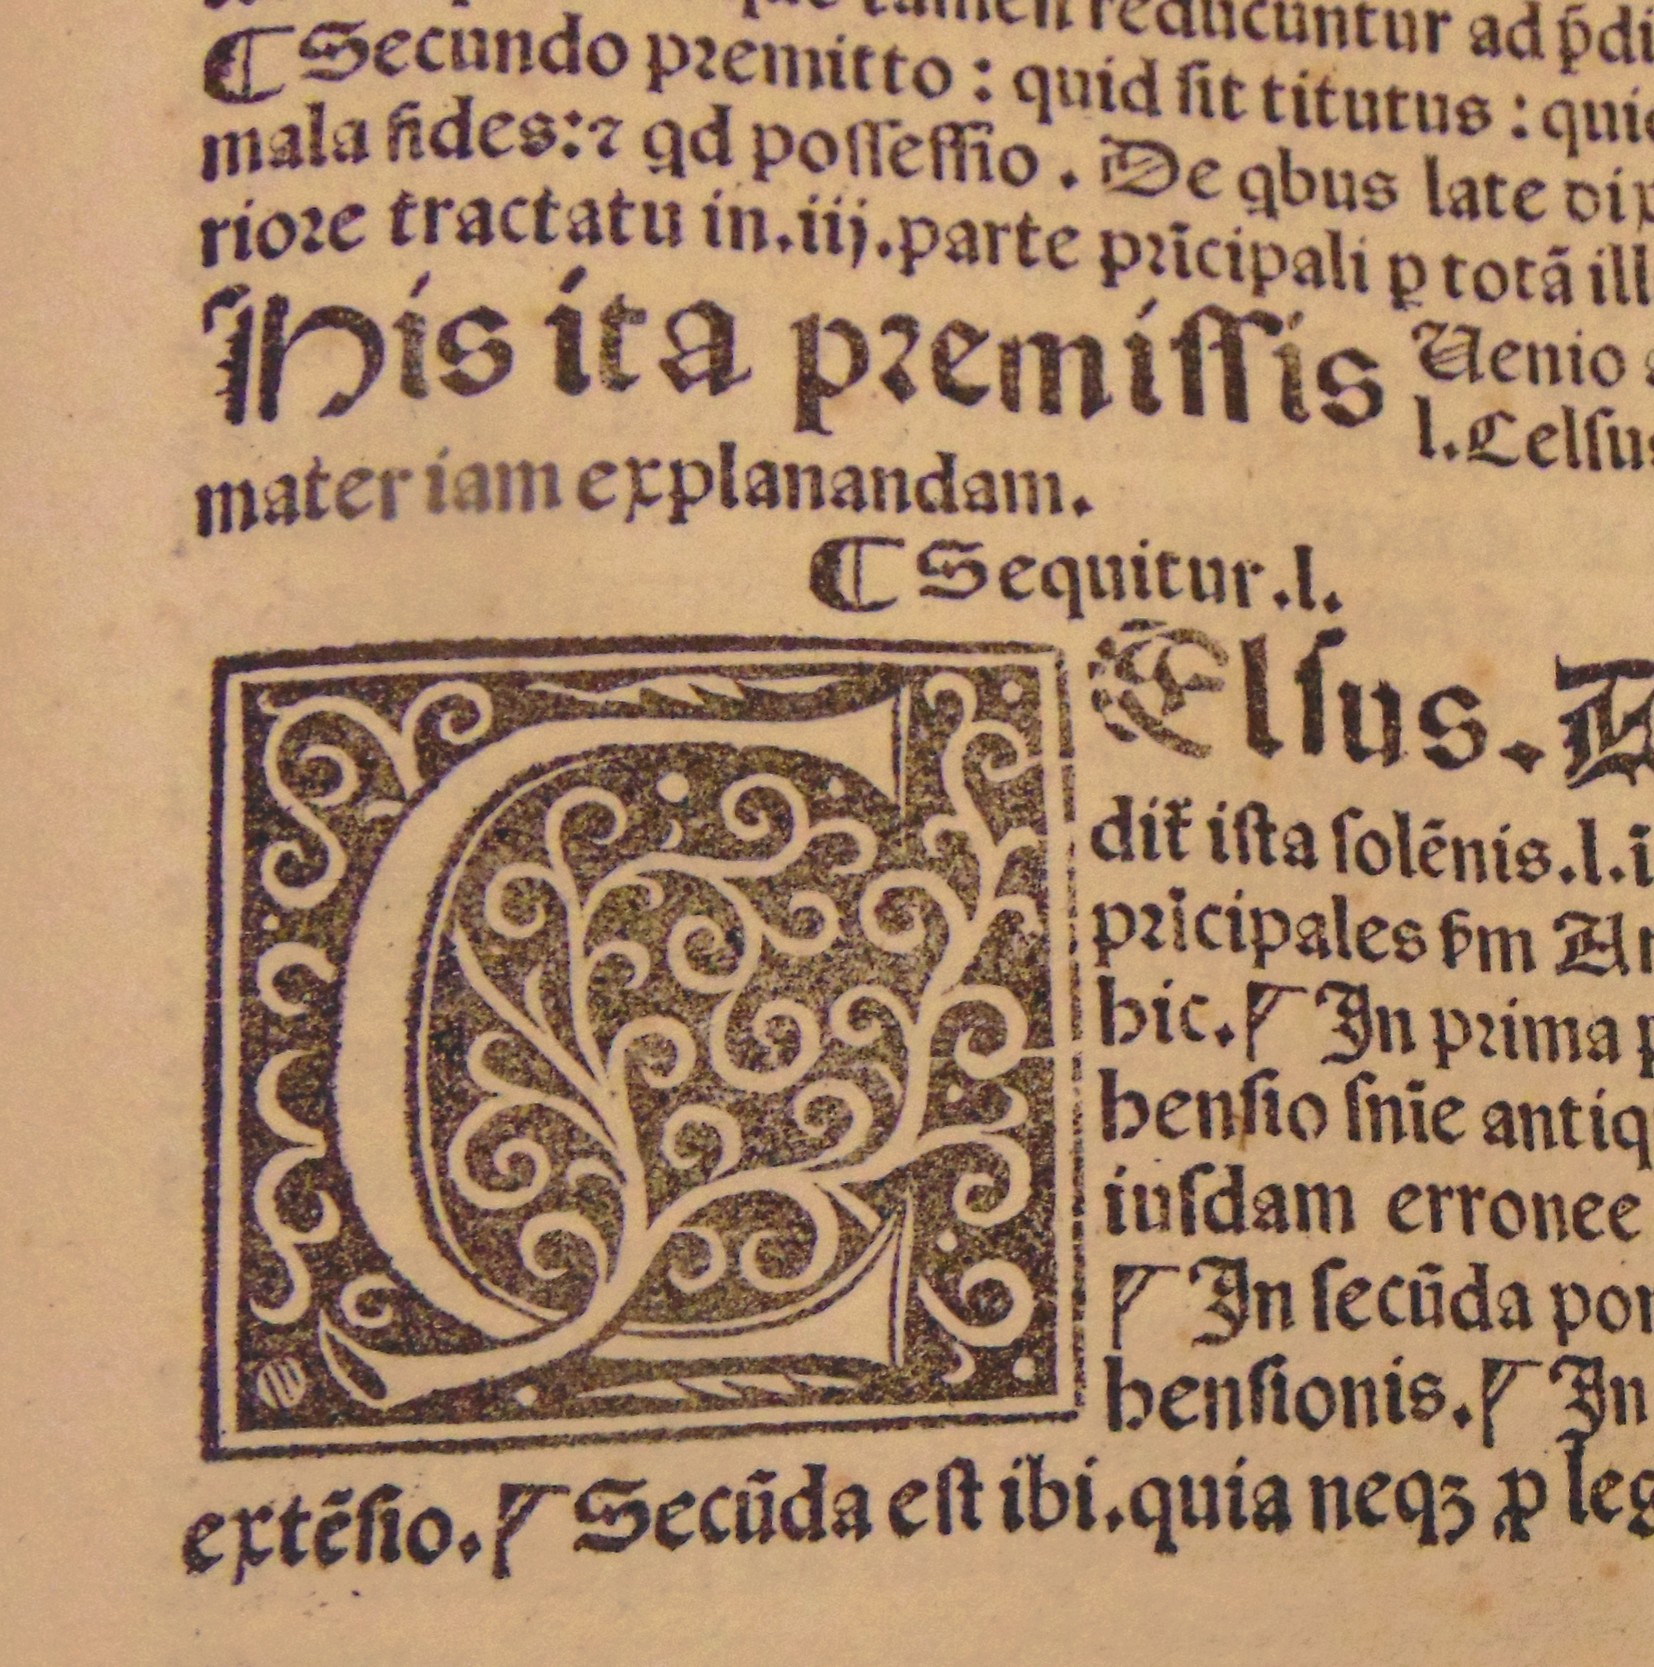 tamen reducuntur ad p̄di
⸿ Secundo premitto : quid ſit titutus : quid
mala fides: ⁊ qd poſſeſſio . De qbus late dix
riore tractatu in.iij.parte prīcipali ꝑ totā ill
His ita premiſſis Uenio
l.Celſus
materiam explanandam.
⸿ Sequitur .l.
CElſus.
diꝉ iſta ſolēnis.l.i
prīcipales ẜm An
hic. In prima p
henſio ſnīe antiq
iuſdam erronee
In ſecūda por
henſionis. In
extēſio. Secūda eſt ibi.quia neqꝫ ꝓ leg